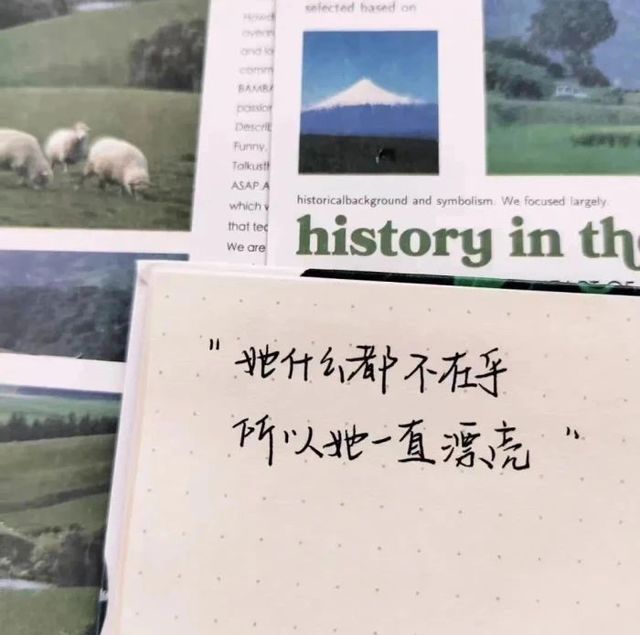 selected based on
and
comm
BAMBA
passion
Descri
Funny,
Talkusth
ASAP A
which
that tec
We are
historicalbackground and symbolism. We focused largely.
history in the
"她什么都不在乎
所以她一直漂亮"